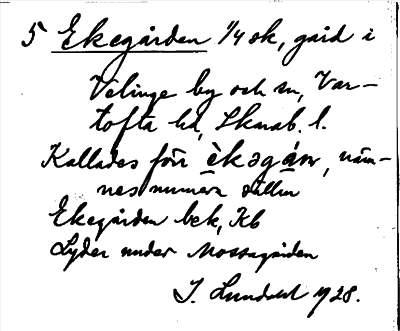 5 Ekegården 1/4 sk, gård i
Velinge by och sn, Var-
tofta hd, Skarab. l.
Kallades förr èkəgán, näm-
nes numera sällan
Ekegården bek, Kb
Lyder under Mossagården
J. Lundahl 1928.